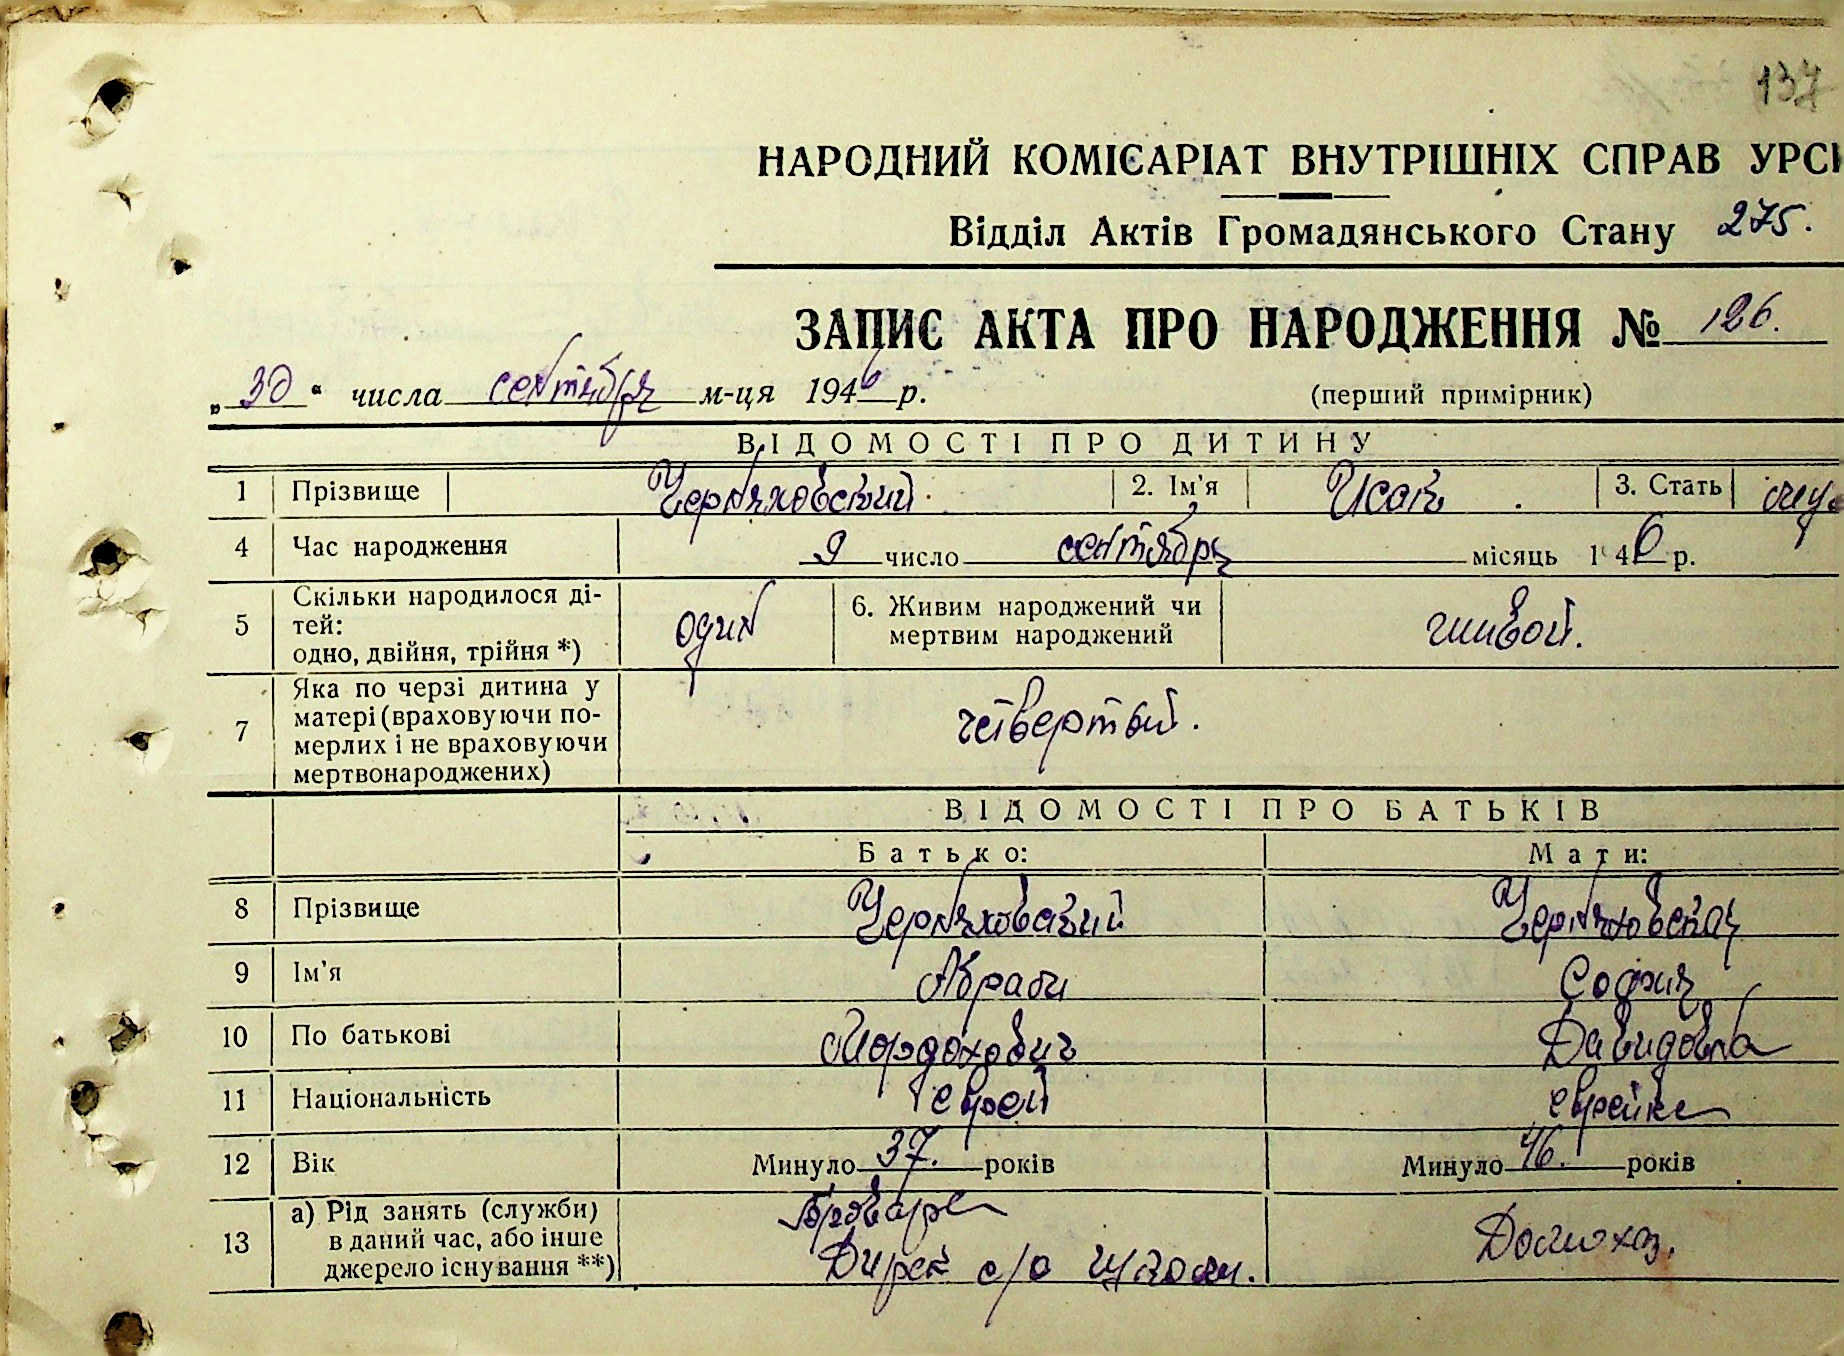 137
НАРОДНИЙ КОМІСАРІАТ ВНУТРІШНІХ СПРАВ УРСР
Відділ Актів Громадянського Стану 275.
ЗАПИС АКТА ПРО НАРОДЖЕННЯ № 126.
„30“ числа сентября м-ця 1946 р. (перший примірник)
ВІДОМОСТІ ПРО ДИТИНУ
1 Прізвище Черняховский. 2. Ім'я Исак. 3. Стать муж
4 Час народження 9 число сентября місяць 1946 р.
5 Скільки народилося ді-
тей:
одно, двійня, трійня *) один 6. Живим народжений чи
мертвим народжений живой.
7 Яка по черзі дитина у
матері (враховуючи по-
мерлих і не враховуючи
мертвонароджених) четвертый.
ВІДОМОСТІ ПРО БАТЬКІВ
Батько: Мати:
8 Прізвище Черняховский Черняховская
9 Ім'я Абрам София
10 По батькові Мордохович Давидовна
11 Національність еврей еврейка
12 Вік Минуло 37. років Минуло 46. років
13 а) Рід занять (служби)
в даний час, або інше
джерело існування **) Директ с/о Домохоз.